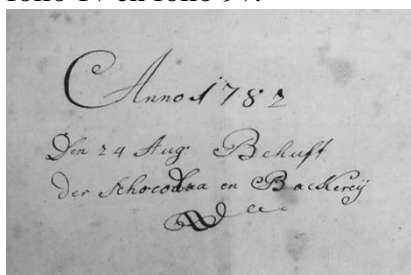 Anno 1782
Den 24 Aug: Behuft
Der Schocodaa en Backereij